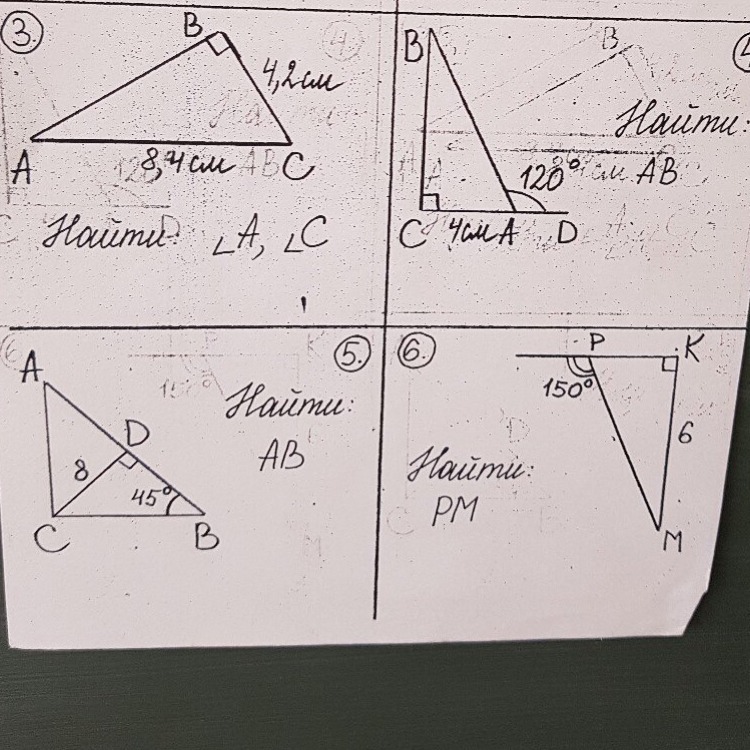 3.
B
4,2см
A
8,4см
C
Найти: ∠A, ∠C
4
B
Найти:
AB
120°
C
4см
A
D
5.
A
D
8
45°
C
B
Найти:
AB
6.
P
K
150°
6
M
Найти:
PM